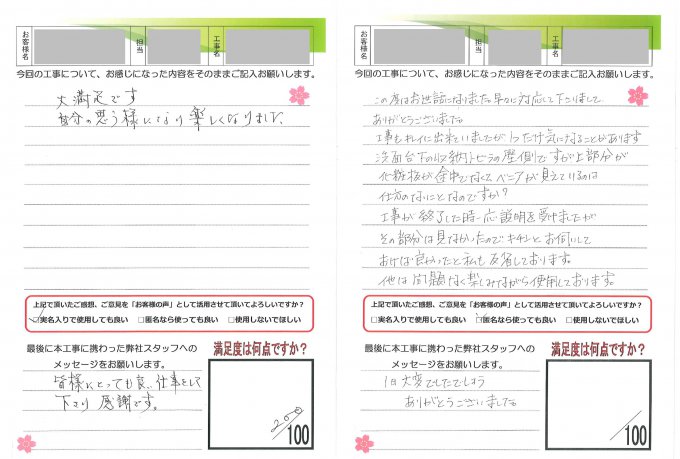 お客様名
担当
工事名
今回の工事について、お感じになった内容をそのままご記入お願いします。
大満足です
自分の思う様になり楽しくなりました。
上記で頂いたご感想、ご意見を「お客様の声」として活用させて頂いてよろしいですか？
☑実名入りで使用しても良い □匿名なら使っても良い □使用しないでほしい
最後に本工事に携わった弊社スタッフへの
メッセージをお願いします。
皆様とても良い仕事をして
下さり感謝です。
満足度は何点ですか？
200/100
お客様名
担当
工事名
今回の工事について、お感じになった内容をそのままご記入お願いします。
この度はお世話になりました早々に対応して下さりまして
ありがとうございました
工事もキレイに出来ていましたが1つだけ気になることがあります
洗面台下の収納トビラの壁側ですが上部分が
化粧板が途中でなくてベニアが見えているのは
仕方のないことなのですか？
工事が終了した時一応説明を受けましたが
その部分は見なかったのでキチンとお伺いして
おけば良かったと私も反省しております。
他は問題なく楽しみながら使用しております。
上記で頂いたご感想、ご意見を「お客様の声」として活用させて頂いてよろしいですか？
□実名入りで使用しても良い ☑匿名なら使っても良い □使用しないでほしい
最後に本工事に携わった弊社スタッフへの
メッセージをお願いします。
1日大変でしたでしょう
ありがとうございました
満足度は何点ですか？
/100